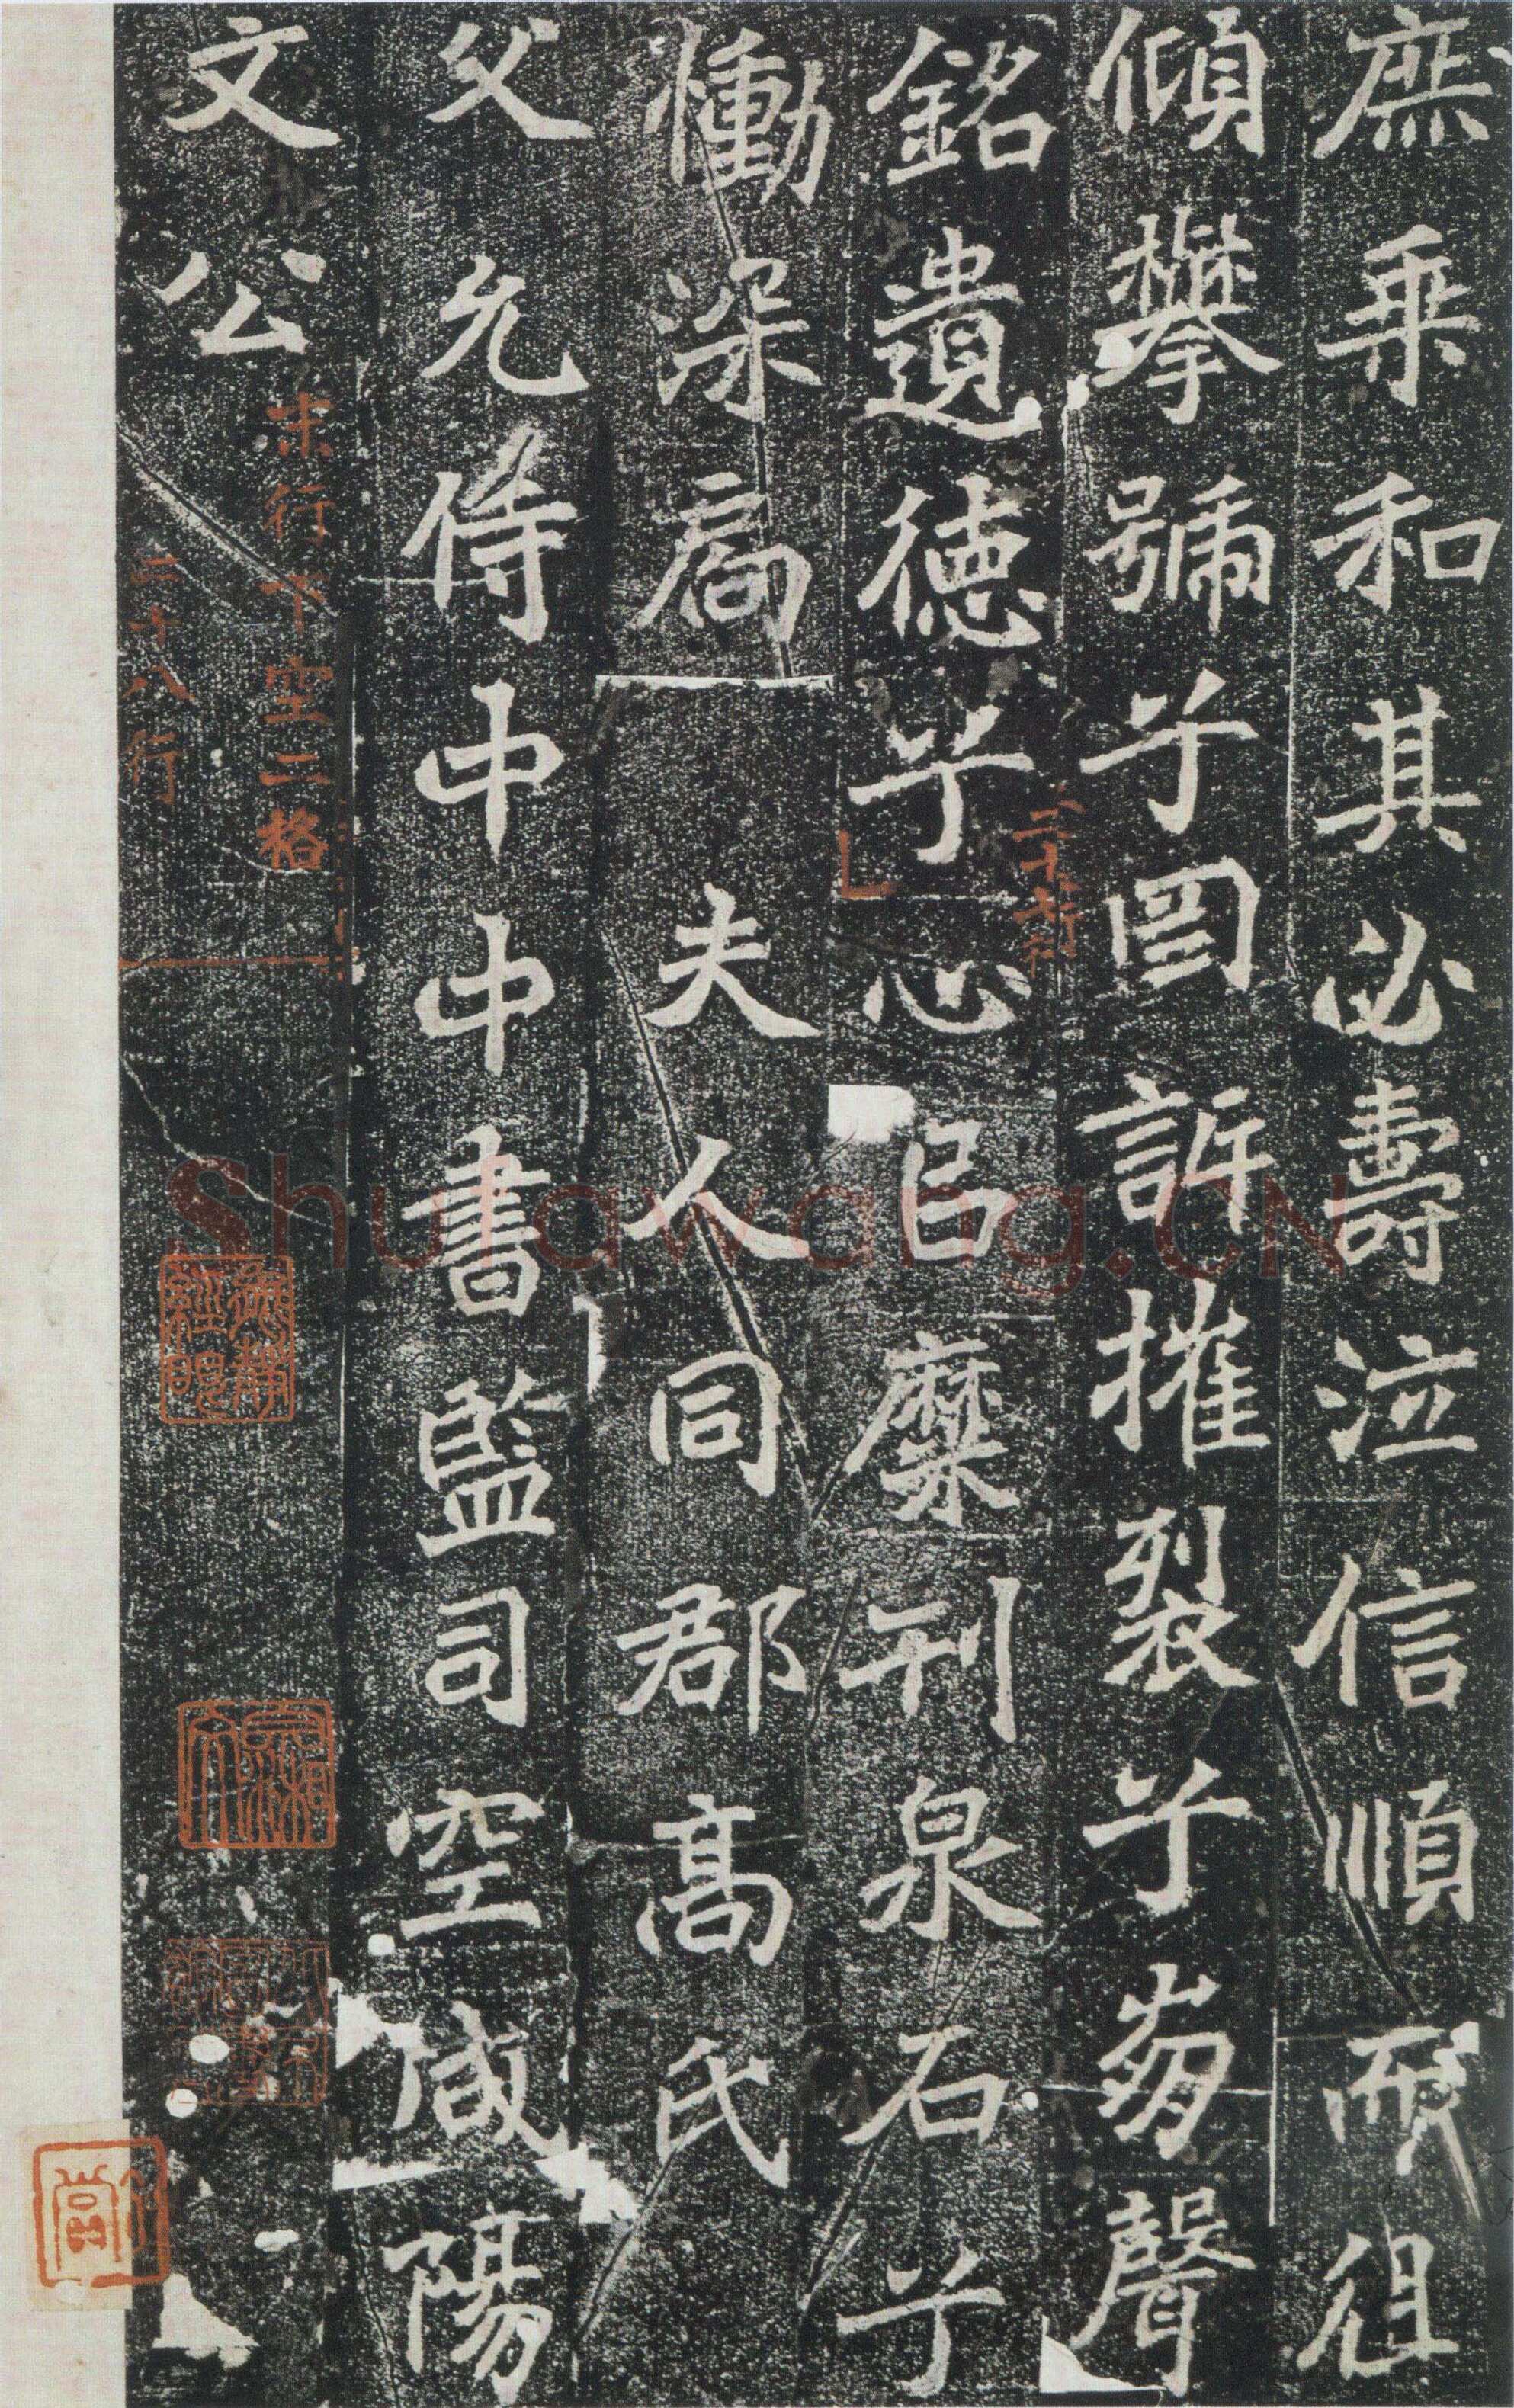 庶乘和其必壽泣信順而徂
傾攀號兮罔訴摧裂兮聲
銘遺德兮心已糜刊泉石兮
二十七行
慟深扃 夫人同郡高氏
父允侍中中書監司空咸陽
文公
末行下空三格
二十八行
Shufawang.CN